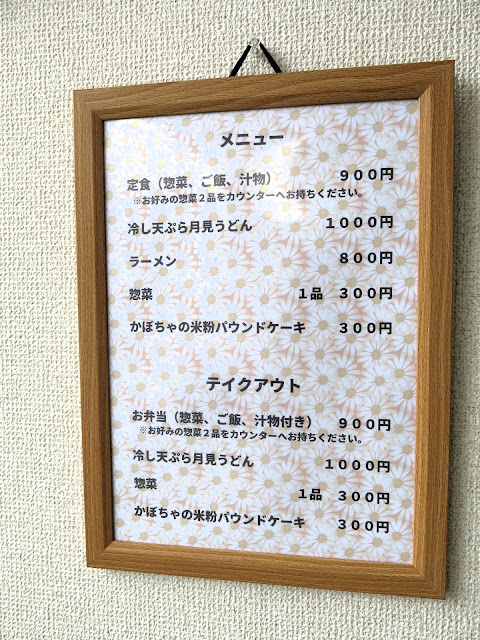 メニュー
定食（惣菜、ご飯、汁物） ９００円
※お好みの惣菜２品をカウンターへお持ちください。
冷し天ぷら月見うどん １０００円
ラーメン ８００円
惣菜 １品 ３００円
かぼちゃの米粉パウンドケーキ ３００円
テイクアウト
お弁当（惣菜、ご飯、汁物付き） ９００円
※お好みの惣菜２品をカウンターへお持ちください。
冷し天ぷら月見うどん １０００円
惣菜 １品 ３００円
かぼちゃの米粉パウンドケーキ ３００円